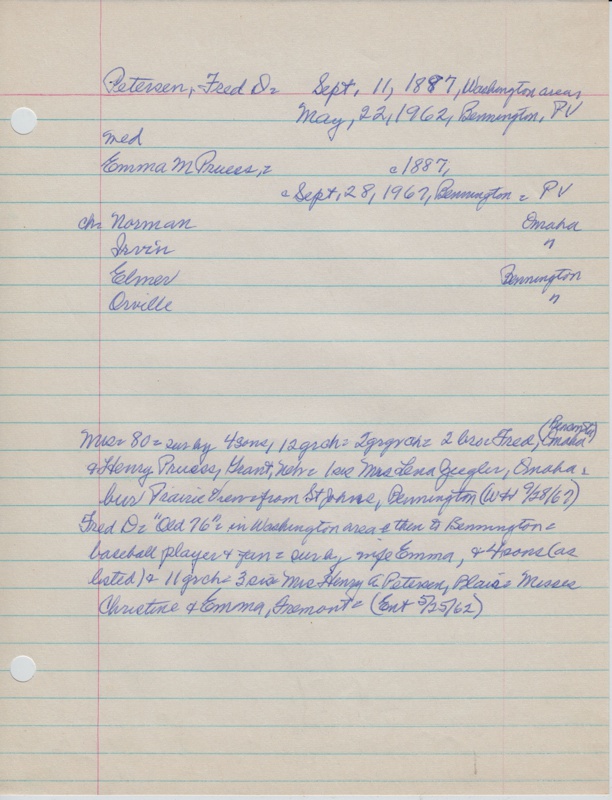 Petersen, Fred D= Sept. 11, 1887, Washington area,
May, 22, 1962, Bennington, PV
med
Emma M Pruess, = c 1887,
c Sept, 28, 1967, Bennington = PV
ch= Norman Omaha
Irvin "
Elmer Bennington
Orville "
Mrs= 80= sur by 4 sons, 12 grch= 2 grgrch= 2 bro= Fred, Omaha
& Henry Pruess, Grant, Neb= 1 sis Mrs Lena Ziegler, Omaha,
bur Prairie View from St Johns, Bennington (W H 9/28/67)
Fred D= "Old 76"= in Washington area & then to Bennington=
baseball player & fan= sur by wife Emma, & 4 sons (as
listed) & 11 grch= 3 sis= Mrs Henry A Petersen, Blair= Misses
Christine & Emma, Fremont= (Ent 5/25/62)